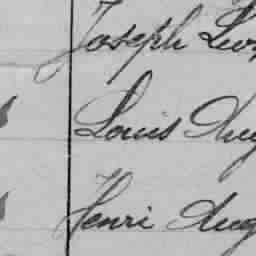 Joseph
Louis Aug
Henri Aug